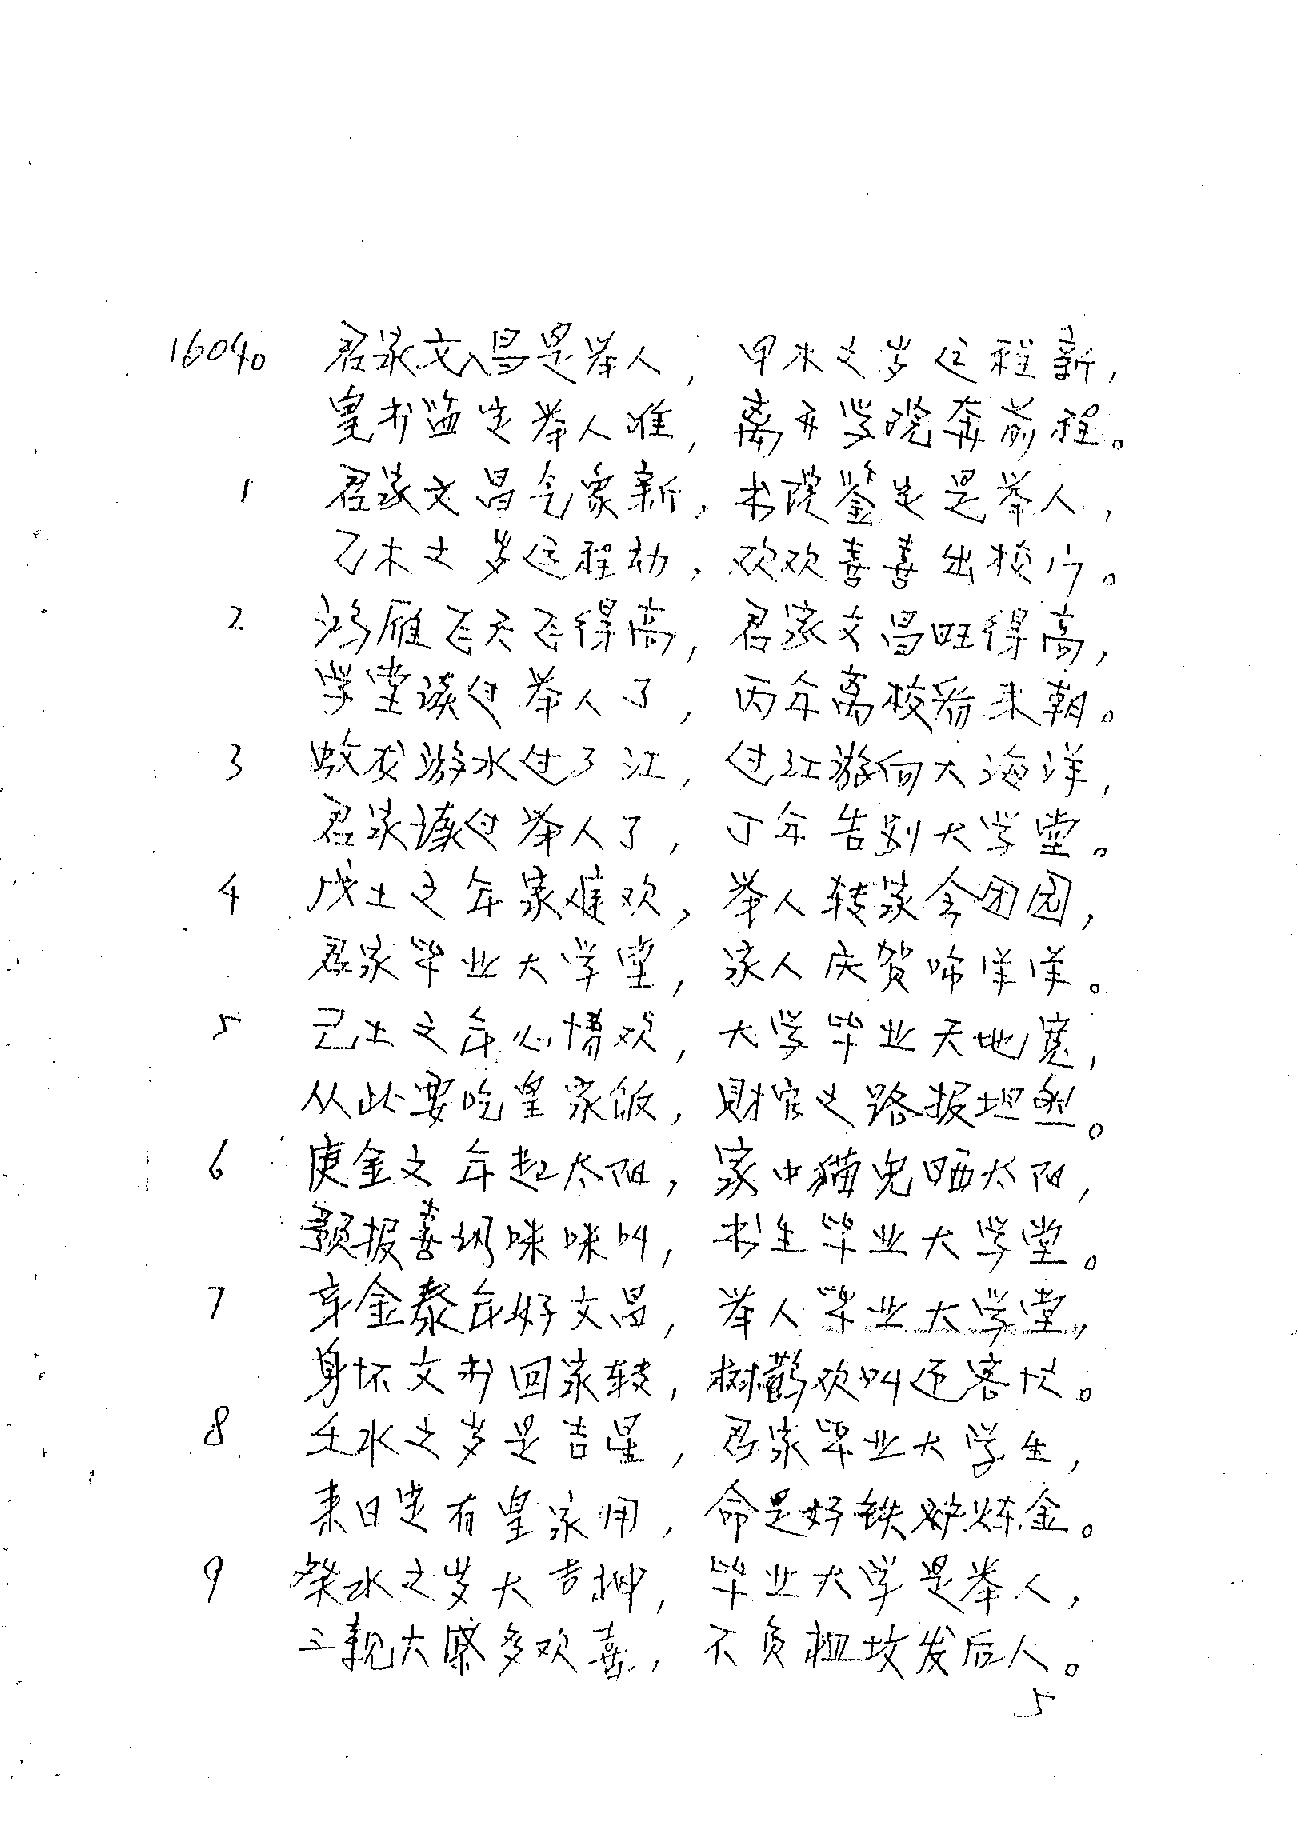 16040 君家文昌是举人，甲木之岁运程新，
皇书鉴定举人准，离开学院奔前程。
1 君家文昌气象新，书院鉴定是举人，
乙木之岁运程动，欢欢喜喜出校门。
2 鸿雁飞天飞得高，君家文昌旺得高，
学堂读过举人了，丙年离校看来朝。
3 蛟龙游水过了江，过江游向大海洋，
君家读过举人了，丁年告别大学堂。
4 戊土之年家难欢，举人转家全团园，
君家毕业大学堂，家人庆贺喃洋洋。
5 己土之年心情欢，大学毕业天地宽，
从此要吃皇家饭，财官之路报坦然。
6 庚金之年起太阳，家中猫儿晒太阳，
预报喜讯咪咪叫，书生毕业大学堂。
7 辛金泰年好文昌，举人毕业大学堂，
身怀文书回家转，树鹊欢叫迎客忙。
8 壬水之岁是吉星，君家毕业大学生，
来日定有皇家用，命是好铁炉炼金。
9 癸水之岁大吉神，毕业大学是举人，
三亲大戚多欢喜，不负祖坟发后人。
5